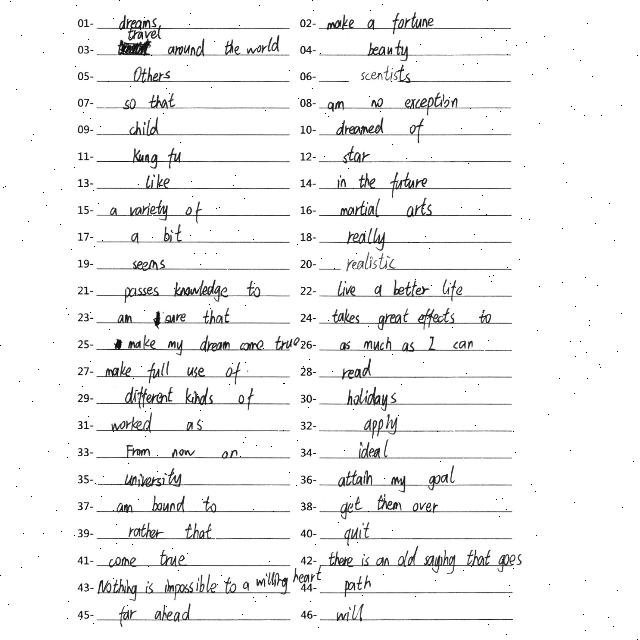 01- dreams 02- make a fortune
03- travel around the world 04- beauty
05- Others 06- scentists
07- so that 08- am no exception
09- child 10- dreamed of
11- Kung fu 12- star
13- like 14- in the future
15- a variety of 16- martial arts
17- a bit 18- really
19- seems 20- realistic
21- passes knowledge to 22- live a better life
23- am sure that 24- takes great effects to
25- make my dream come true 26- as much as I can
27- make full use of 28- read
29- different kinds of 30- holidays
31- worked as 32- apply
33- From now on 34- ideal
35- university 36- attain my goal
37- am bound to 38- get them over
39- rather that 40- quit
41- come true 42- there is an old saying that goes
43- Nothing is impossible to a willing heart 44- path
45- far ahead 46- will